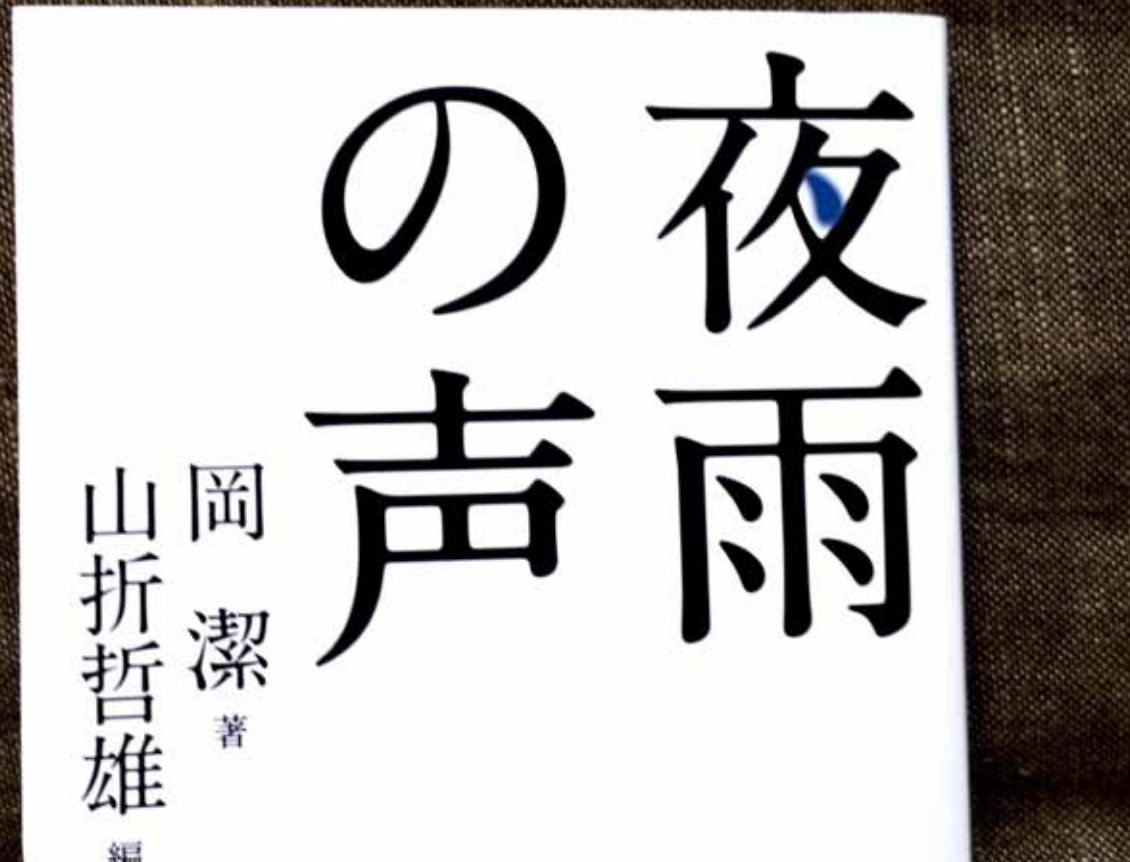 夜雨
の声
岡 潔 著
山折哲雄 編